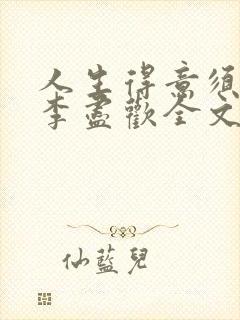 人生得意須
李盡歡全文
仙藍兒